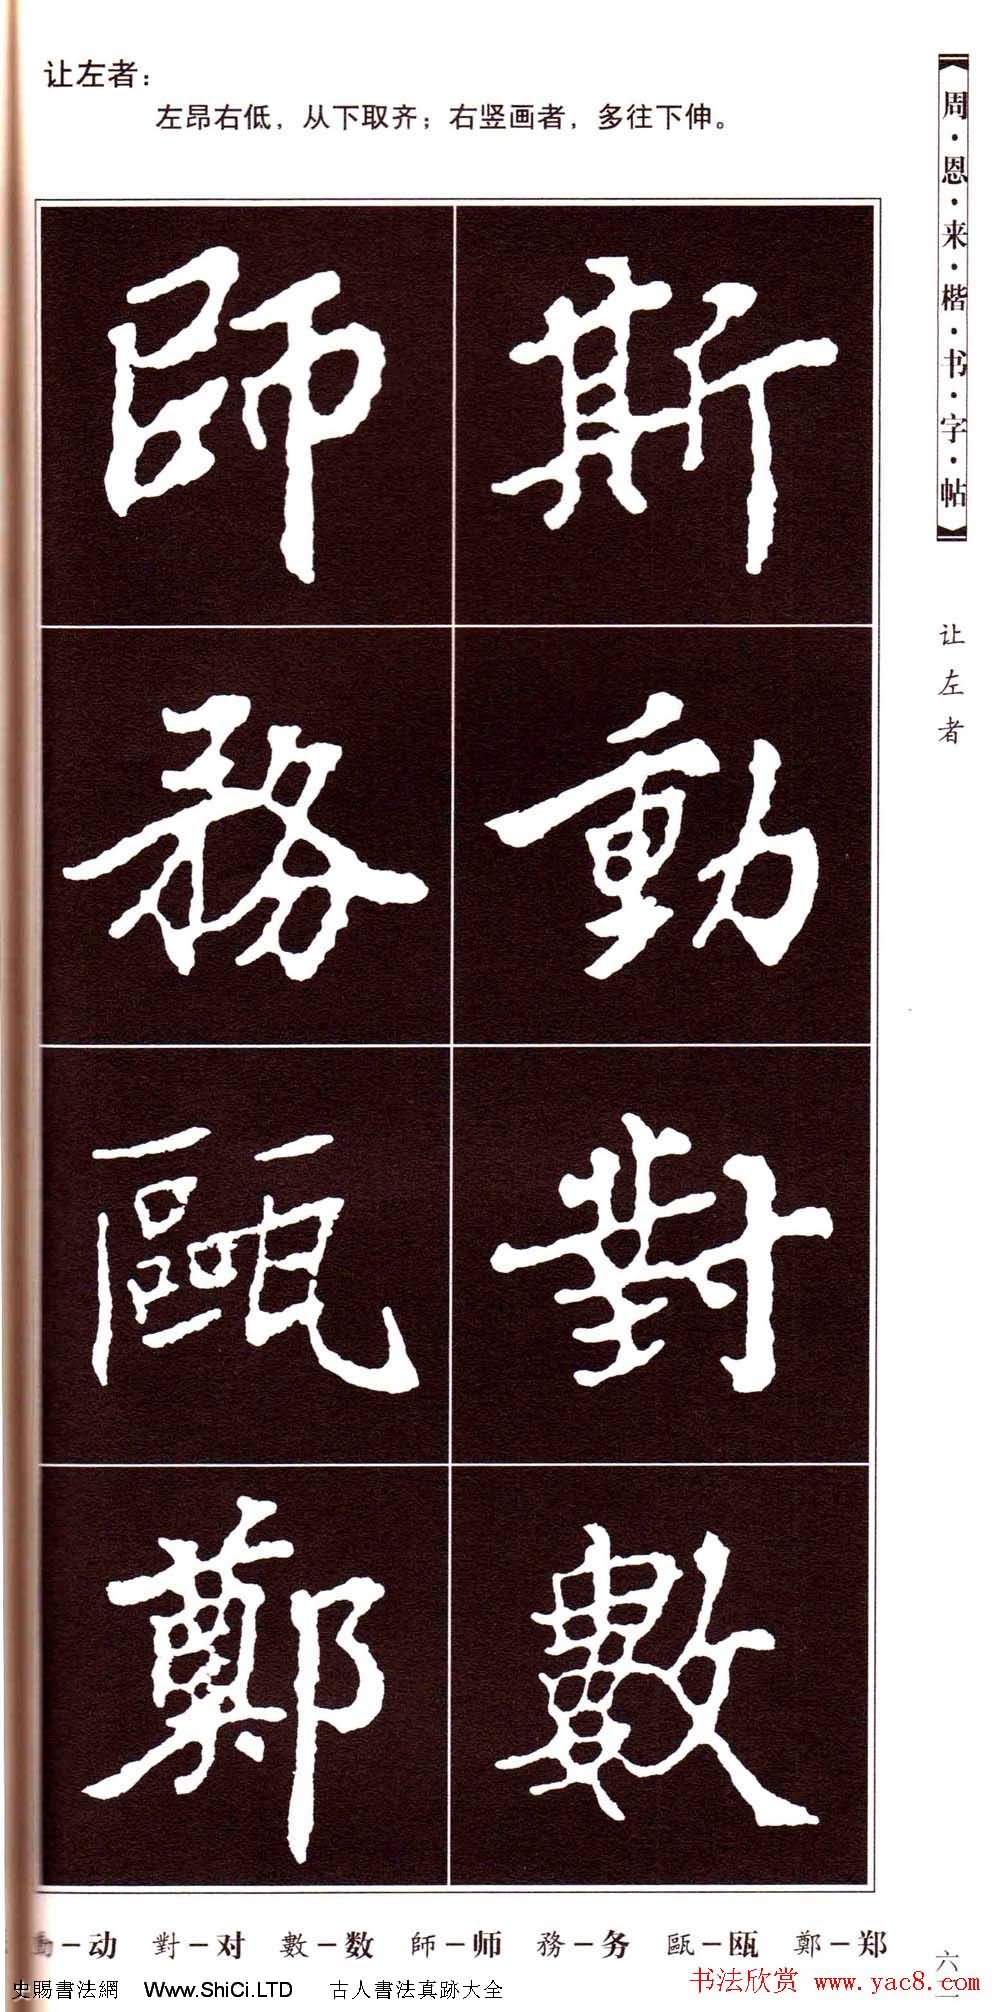 让左者：
左昂右低，从下取齐；右竖画者，多往下伸。
周·恩·来·楷·书·字·帖
让左者
斯動對數
師務甌鄭
動－动 對－对 數－数 師－师 務－务 甌－瓯 鄭－郑
史賜書法網 Www.ShiCi.LTD 古人書法真跡大全
书法欣赏 www.yac8.com